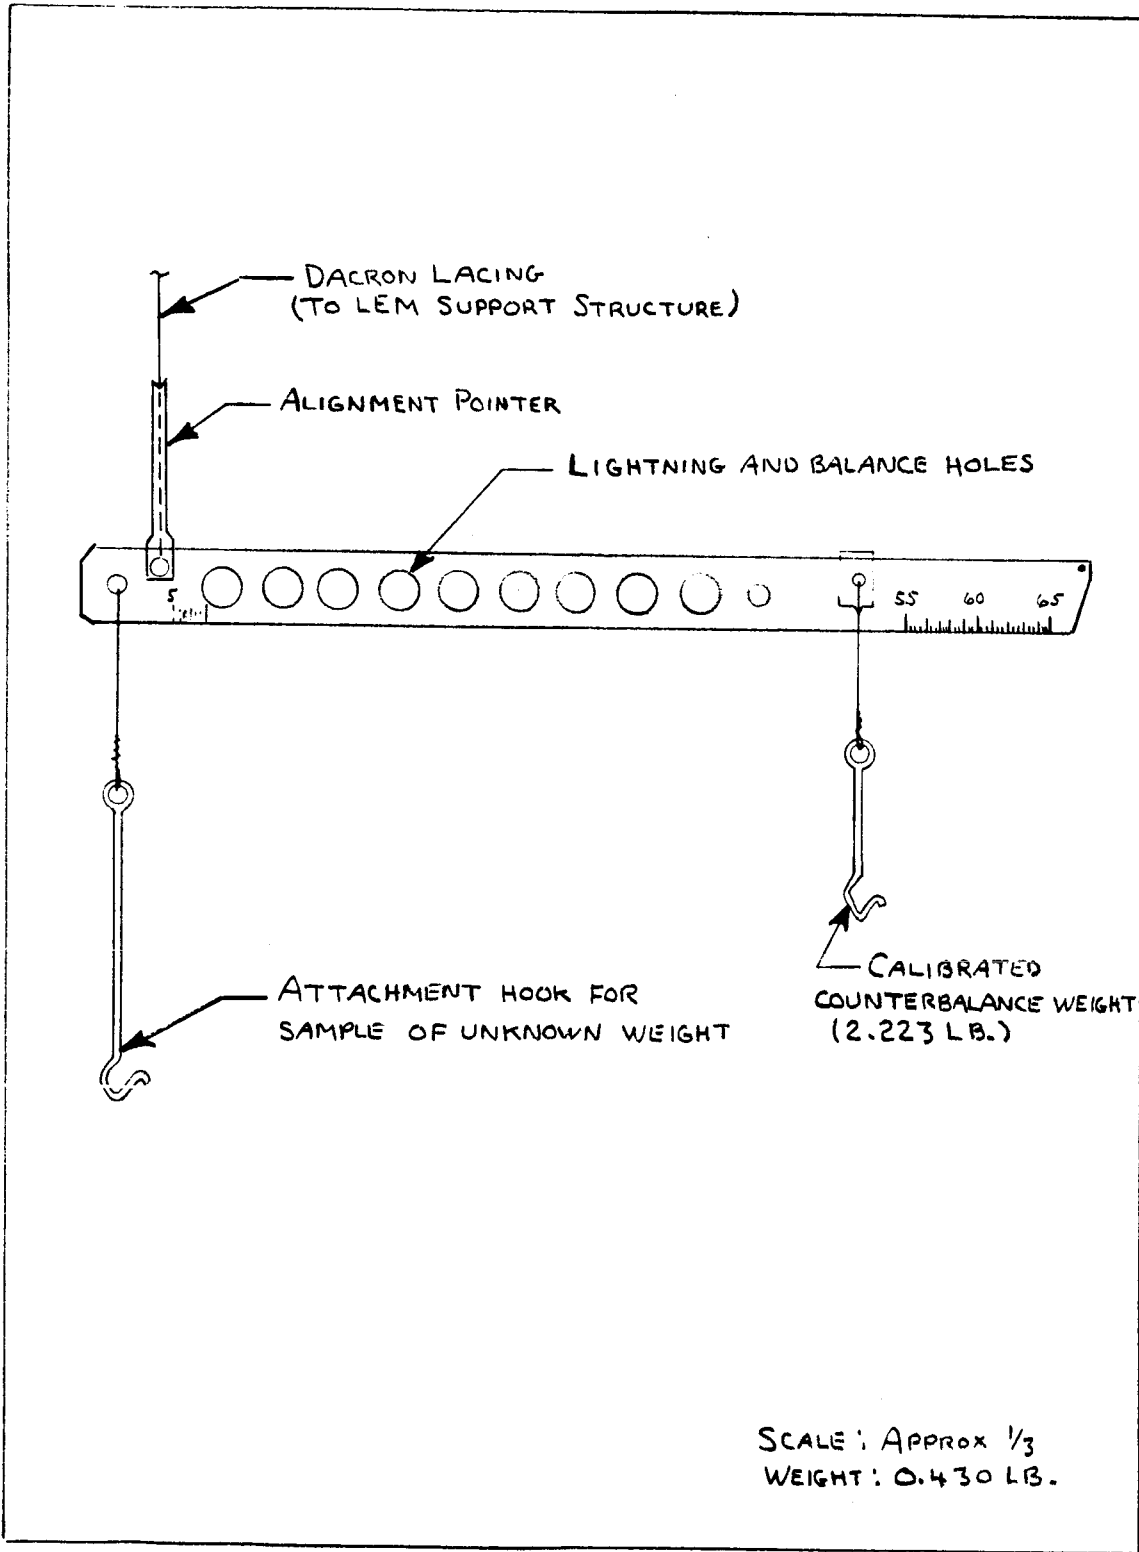 DACRON LACING
(TO LEM SUPPORT STRUCTURE)
ALIGNMENT POINTER
LIGHTNING AND BALANCE HOLES
5
55 60 65
ATTACHMENT HOOK FOR
SAMPLE OF UNKNOWN WEIGHT
CALIBRATED
COUNTERBALANCE WEIGHT
(2.223 LB.)
SCALE: APPROX 1/3
WEIGHT: 0.430 LB.